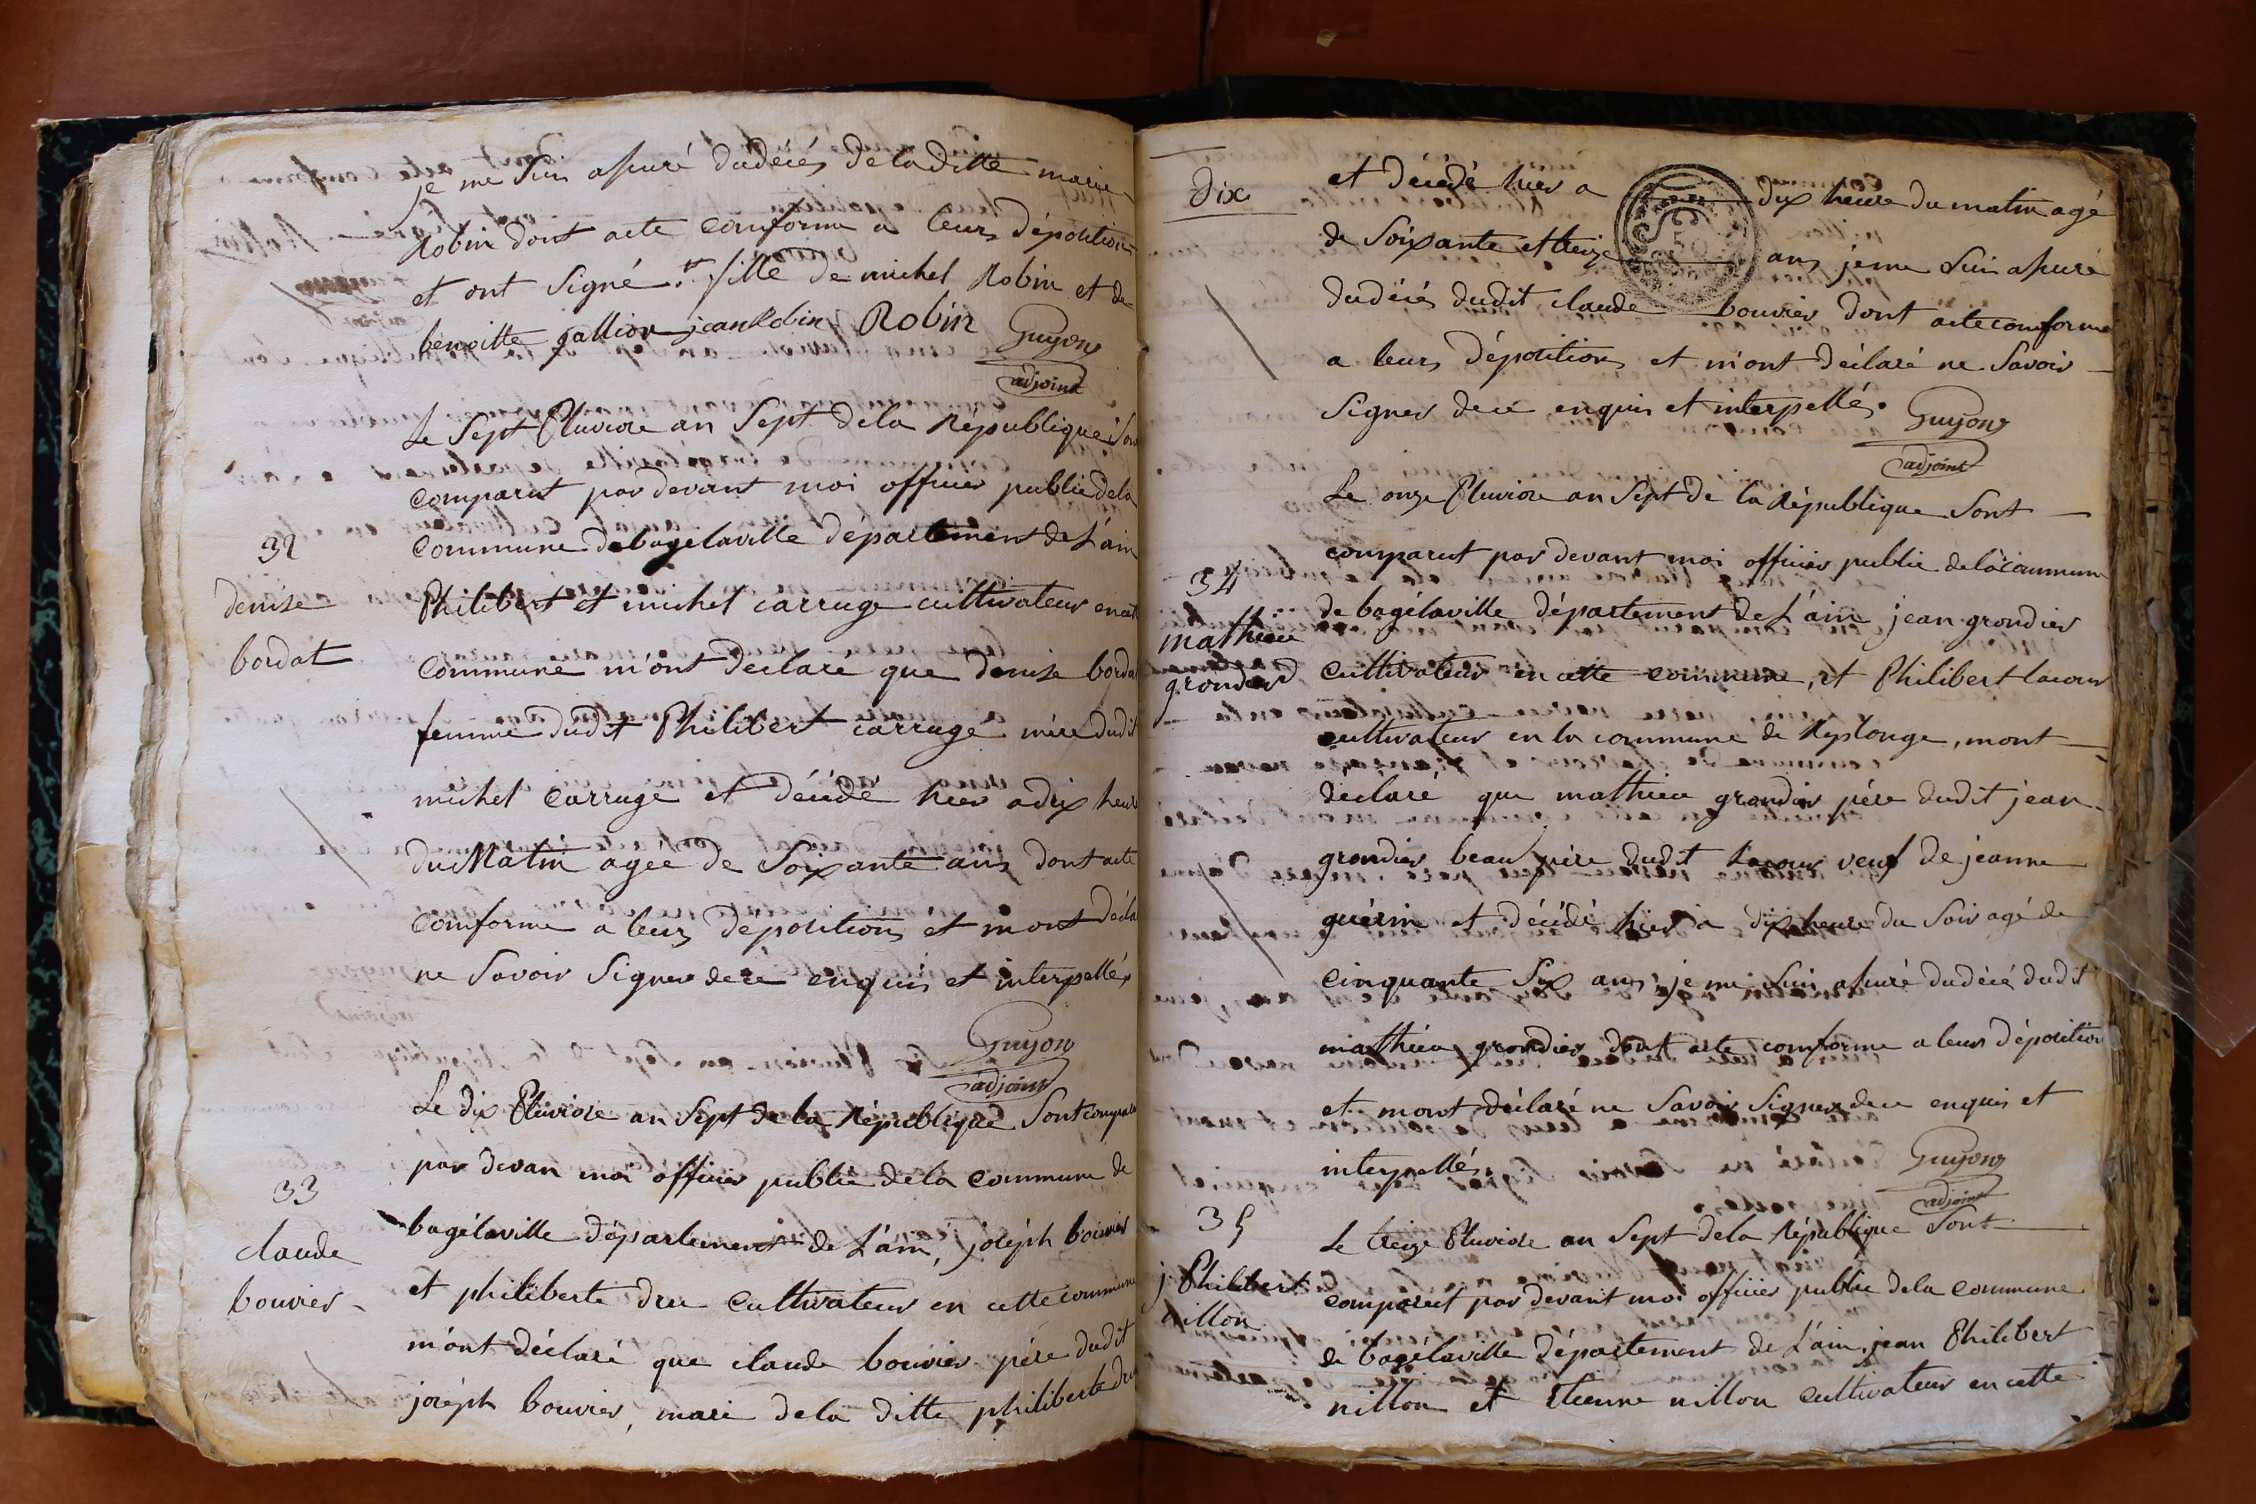 je me suis assuré dudécés dela ditte marie
Robin dont acte conforme a leurs dépositions
et ont signé .// fille de michel Robin et de
benoitte gallion jean Robin Robin
Guyon
adjoint
Le sept Pluviose an sept dela République son
comparut par devant moi officier public dela
commune de bagélaville département de L'ain
32
denise
bordat
Philibert et michel carruge cultivateur en cet
commune m'ont déclaré que denise borda
femme dudit Philibert carruge mère dudit
michel carruge et décédé hier a dix heure
du Matin agee de soixante ans dont acte
conforme a leurs dépositions et m'ont décla
ne savoir signer de ce enquis et interpellés
Guyon
adjoint
Le dix Pluviose an sept de la République sont compar
par devan moi officier public dela commune de
33
claude
bouvier
bagélaville département de L'ain, joséph bouvier
et philiberte dru cultivateur en cette commune
m'ont déclaré que claude bouvier père dudit
joséph bouvier, mari dela ditte philiberte dru
Dix
et décédé hier a dix heure du matin agé
de soixante et treize ans je me suis assuré
dudécés dudit claude bouvier dont acte conforme
a leurs dépositions et m'ont déclaré ne savoir
signer de ce enquis et interpellés.
Guyon
adjoint
Le onze Pluviose an sept de la République sont
comparut par devant moi officier public dela commune
34
mathieu
grondier
de bagélaville département de L'ain jean grondier
cultivateur en cette commune, et Philibert lacour
cultivateur en la commune de Replonge, mont
déclaré que mathieu grondier père dudit jean
grondier beau père dudit Lacour veuf de jeanne
guérin et décédé hier a dix heure du soir agé de
cinquante six ans je me suis assuré dudécé dudit
mathieu grondier dont acte conforme a leur déposition
et mont déclaré ne savoir signer de ce enquis et
interpellés
Guyon
adjoint
35
j Philibert
nillon
Le treize Pluviose an sept dela République sont
comparut par devant moi officier public dela commune
de bagélaville département de L'ain, jean Philibert
nillon et Etienne nillon cultivateur en cette